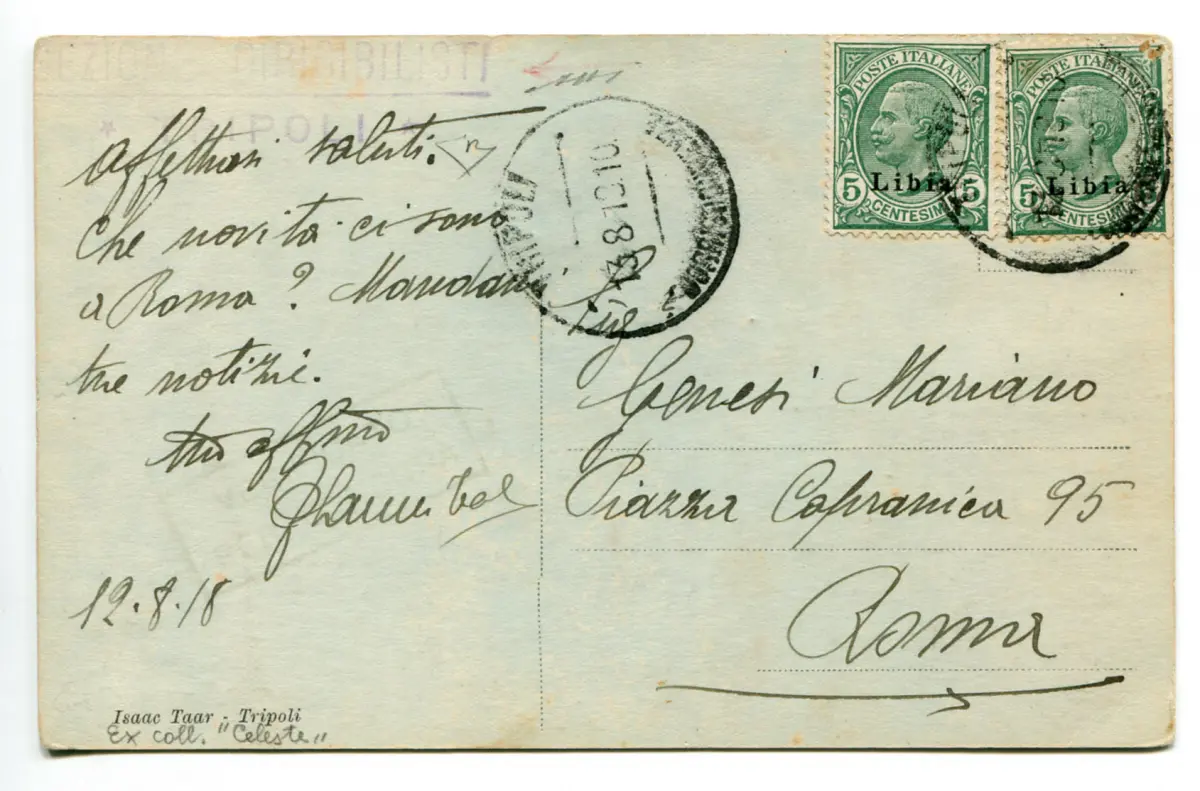 SEZIONE DIRIGIBILISTI
* TRIPOLI
Affettuosi saluti.
Che novita ci sono
a Roma? Mandami
tue notizie.
tuo affmo
12.8.18
Isaac Taar - Tripoli
Ex coll. "Celeste"
TRIPOLI
13.8.18 10
POSTE ITALIANE
5 5
CENTESIMI
Libia
POSTE ITALIANE
5
CENTESIMI
Libia
TRIPOLI
Sig
Genesi Mariano
Piazza Capranica 95
Roma